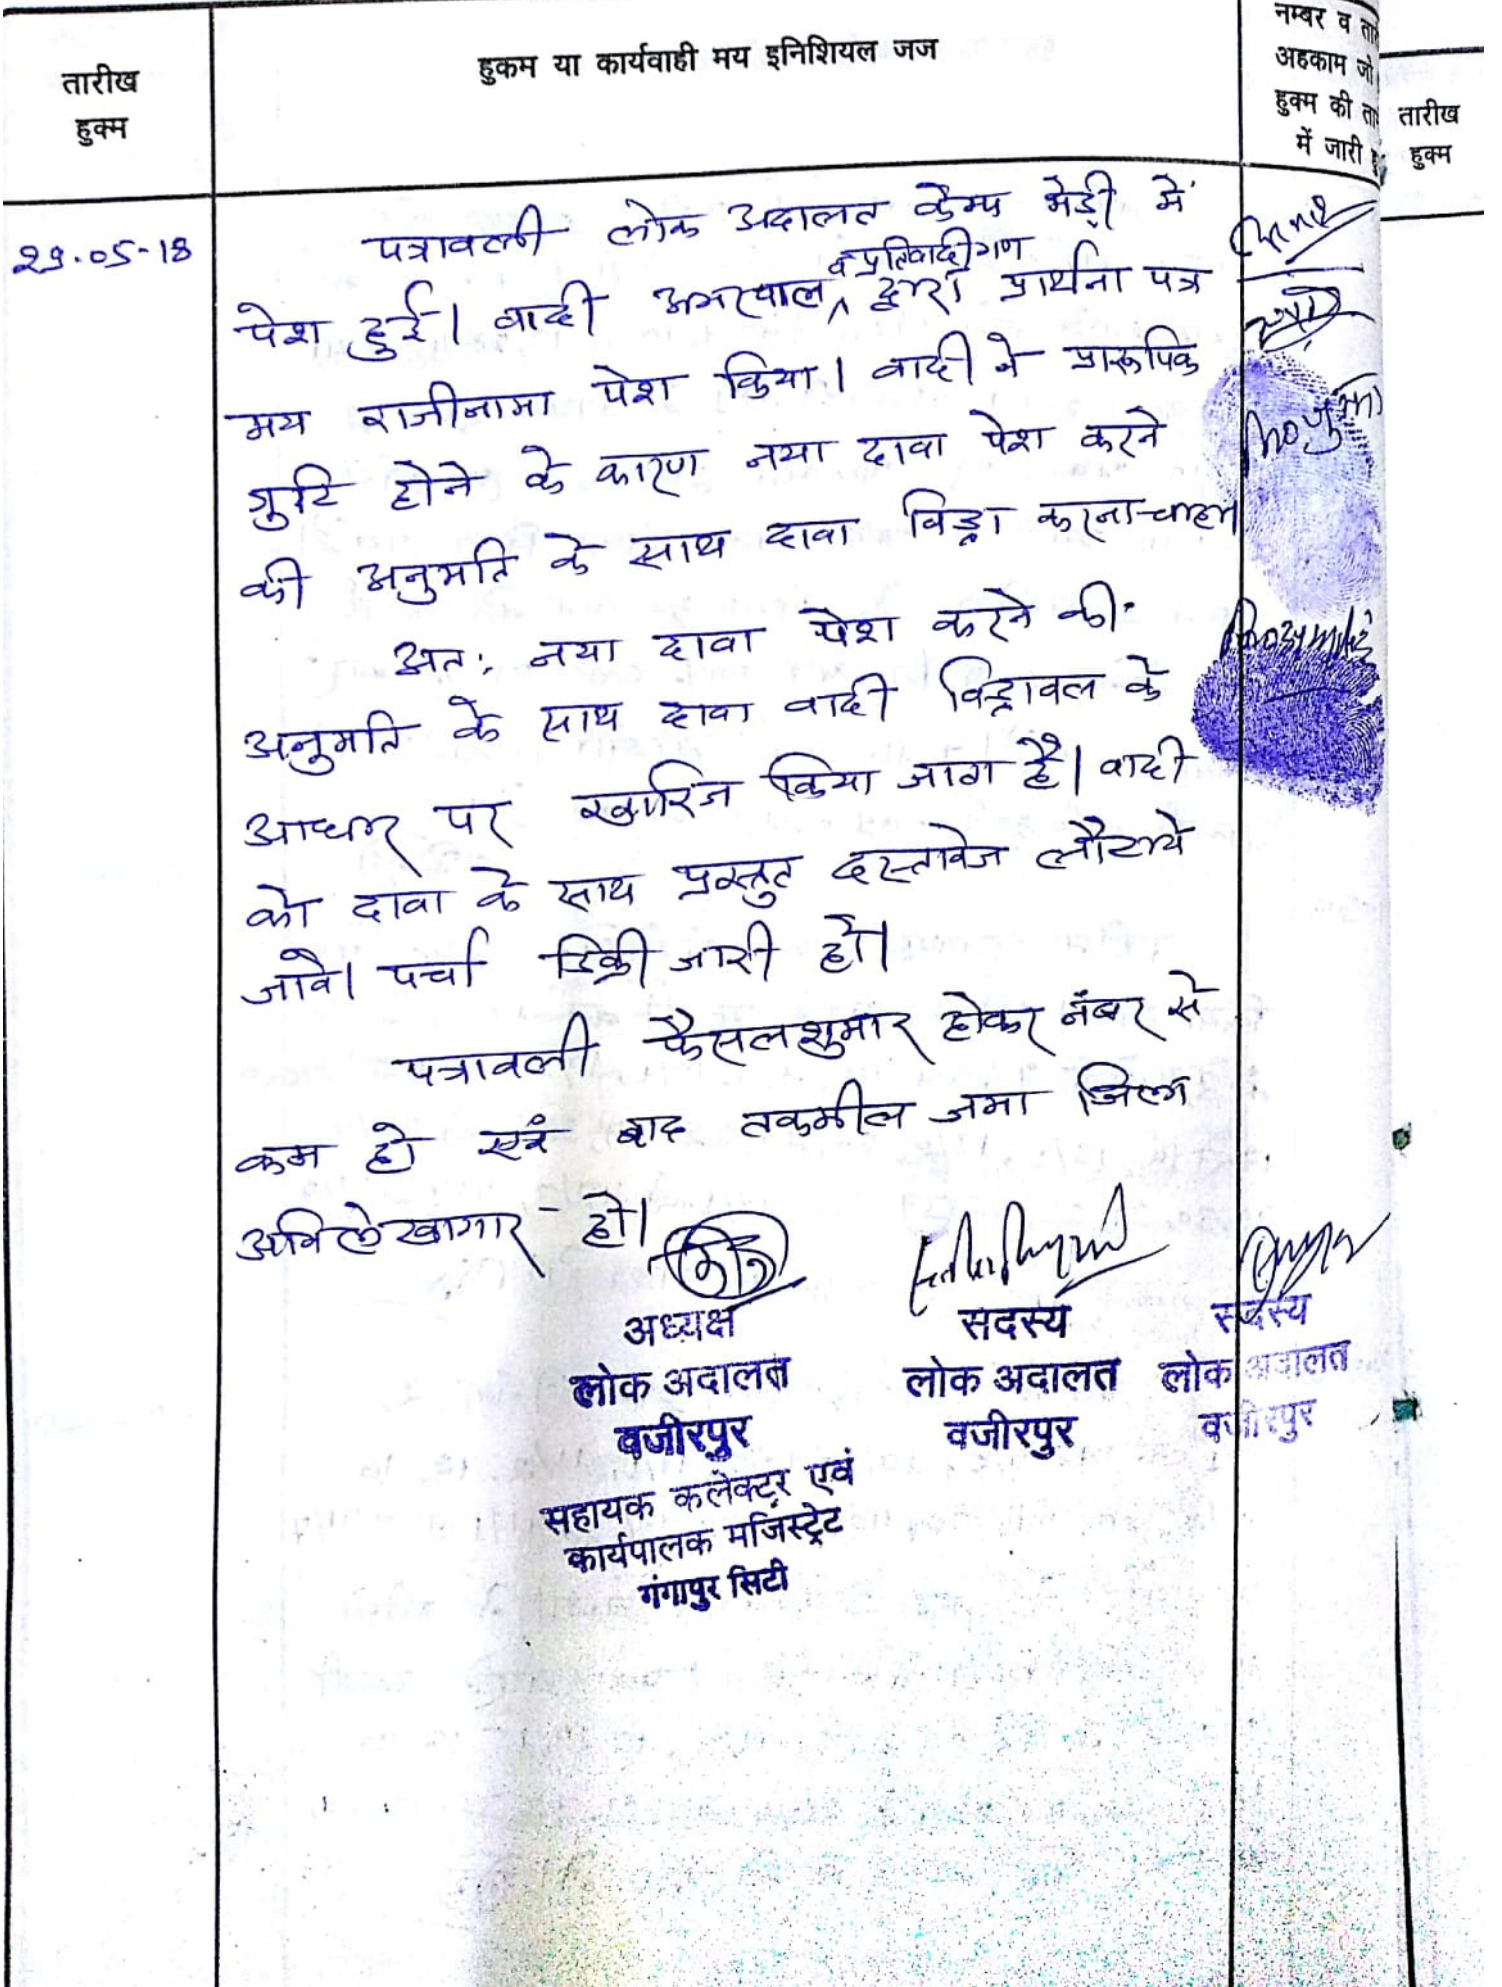 तारीख
हुक्म
हुकम या कार्यवाही मय इनिशियल जज
नम्बर व
अहकाम जो
हुक्म की
में जारी
तारीख
हुक्म
29.05-18
पत्रावली लोक अदालत कैम्प मेड़ी में
व प्रतिवादीगण
पेश हुई। वादी अमरपाल ^ द्वारा प्रार्थना पत्र
मय राजीनामा पेश किया। वादी ने प्रारूपिक
त्रुटि होने के कारण नया दावा पेश करने
की अनुमति के साथ दावा विड्रा करना चाहता
अतः नया दावा पेश करने की
अनुमति के साथ दावा वादी विड्रावल के
आधार पर खारिज किया जाता है। वादी
को दावा के साथ प्रस्तुत दस्तावेज लौटाये
जावे। पर्चा डिक्री जारी हो।
पत्रावली फैसलशुमार होकर नंबर से
कम हो एवं बाद तकमील जमा जिला
अभिलेखागार - हो।
अध्यक्ष
लोक अदालत
वजीरपुर
सहायक कलेक्टर एवं
कार्यपालक मजिस्ट्रेट
गंगापुर सिटी
सदस्य
लोक अदालत
वजीरपुर
सदस्य
लोक अदालत
वजीरपुर